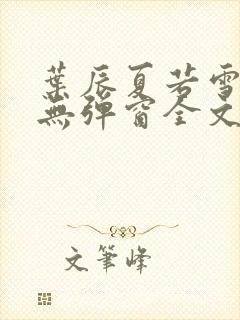 葉辰夏若雪
無彈窗全文
文筆峰